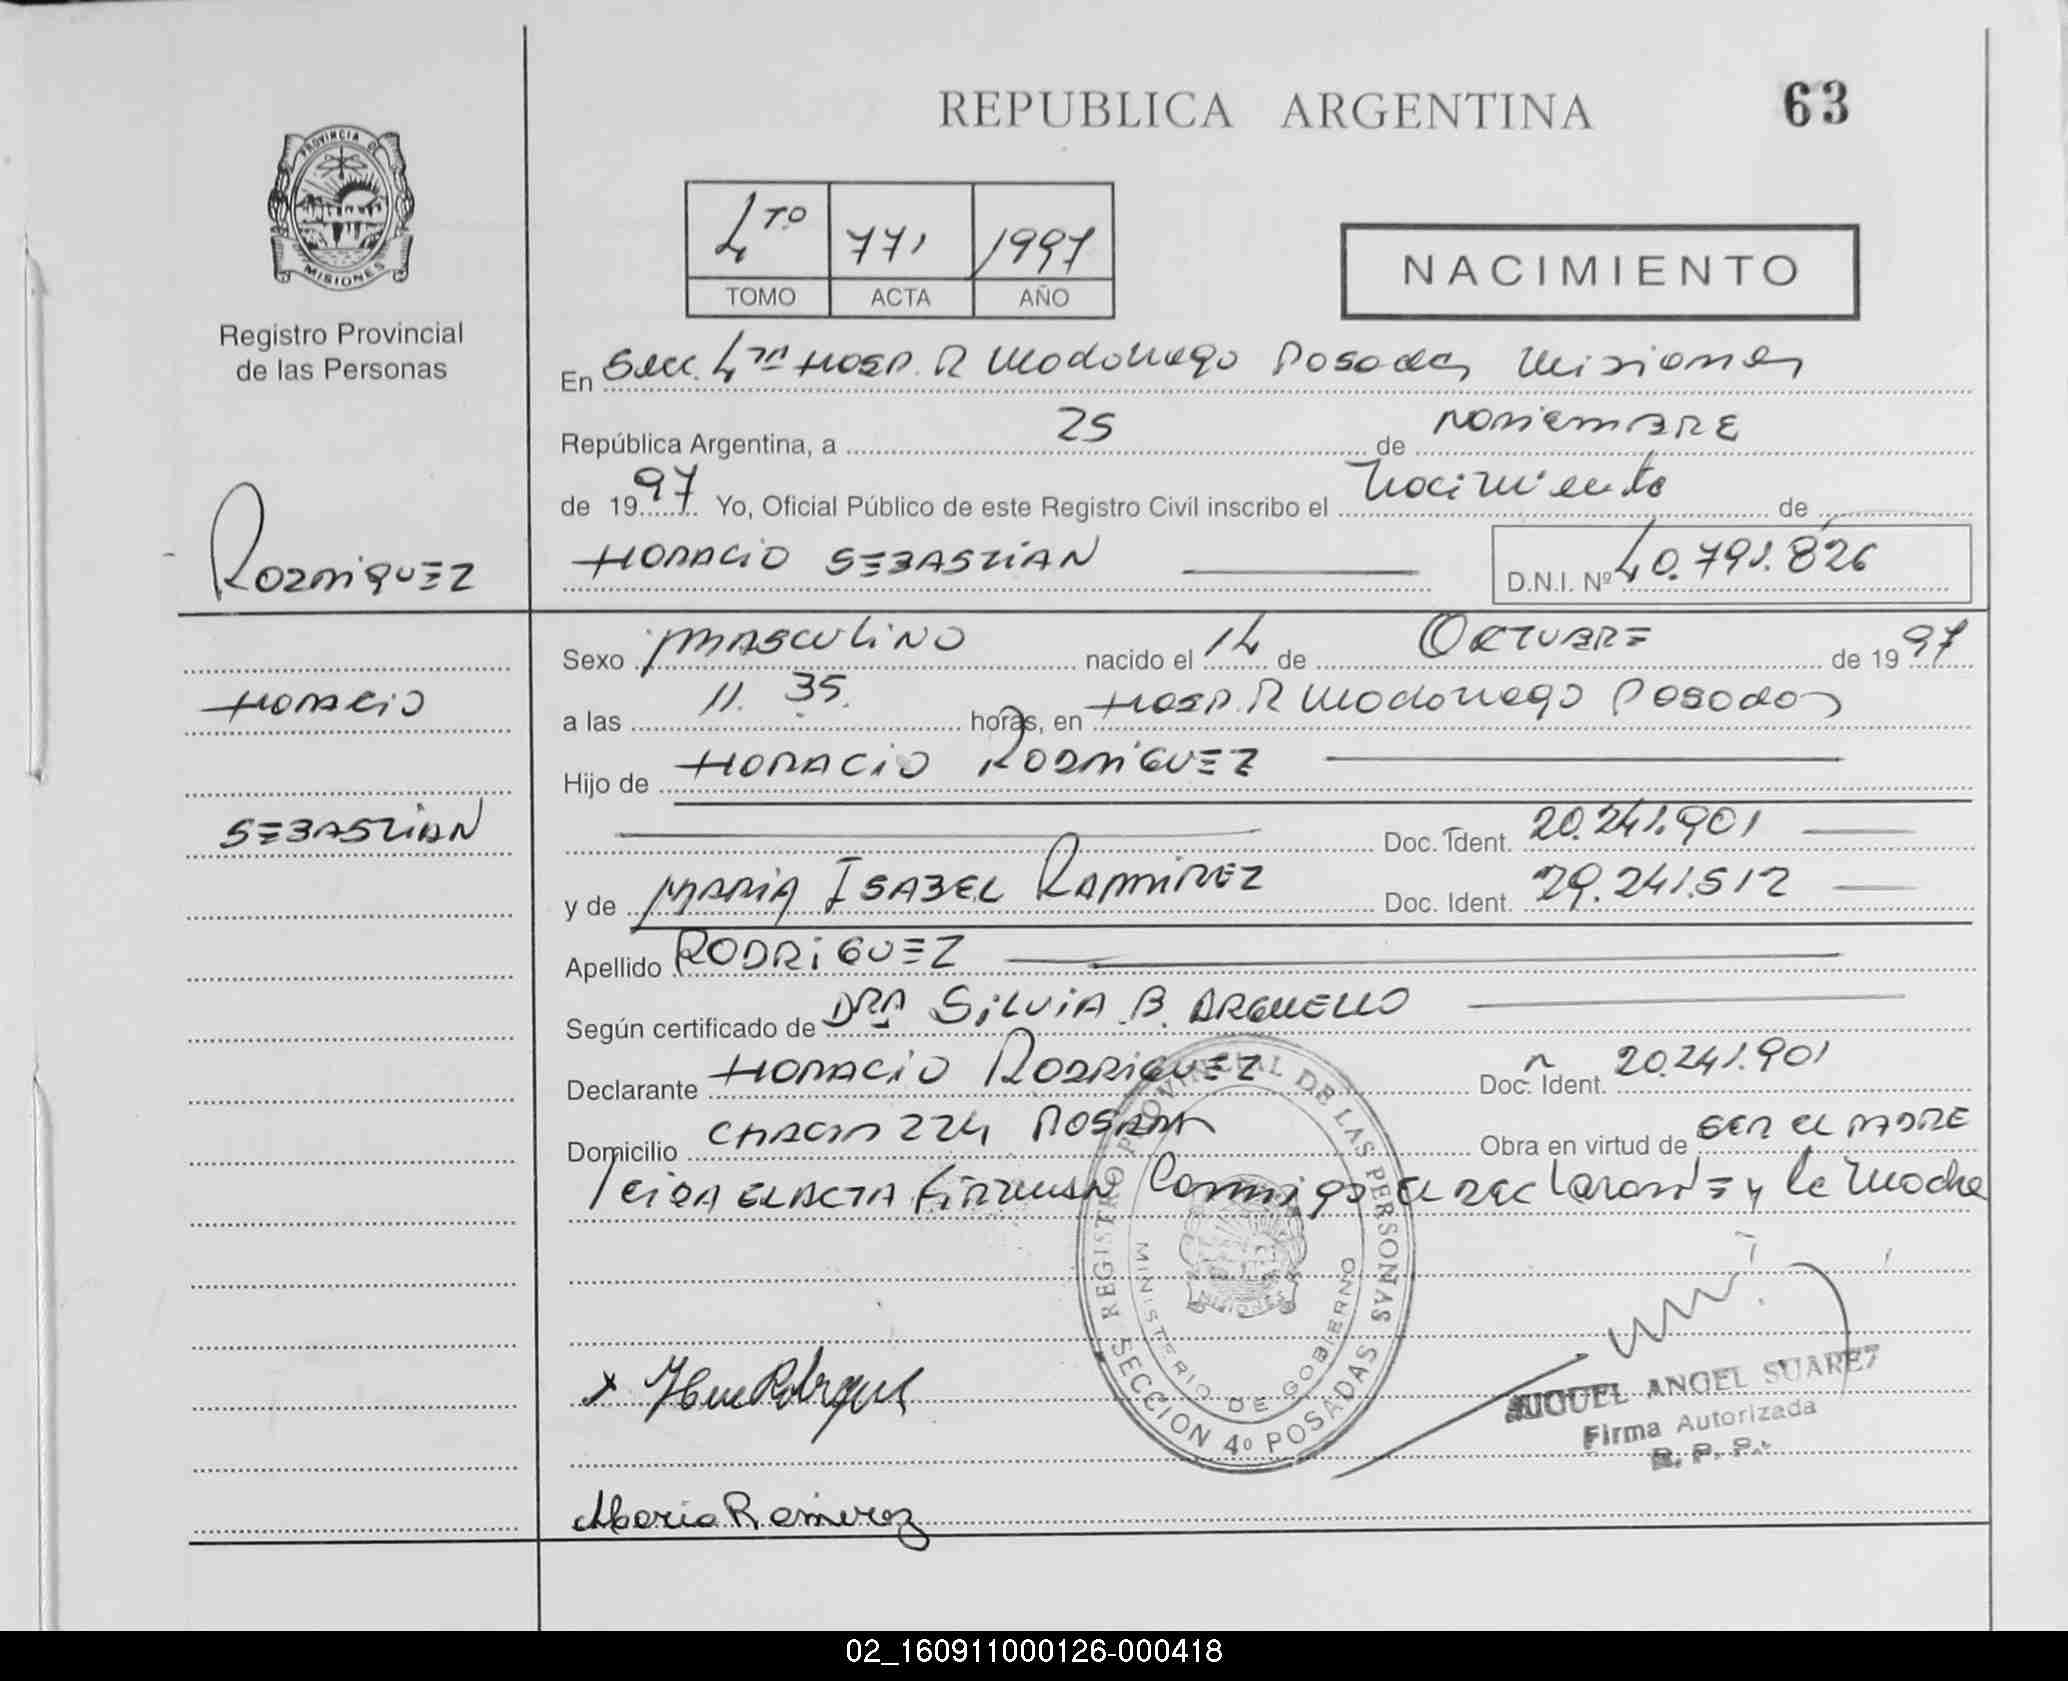 REPUBLICA ARGENTINA
63
PROVINCIA DE
MISIONES
Registro Provincial
de las Personas
4TO 771 1997
TOMO ACTA AÑO
NACIMIENTO
En Secc. 4ta HOSP. R Madariaga Posadas Misiones
República Argentina, a 25 de NOVIEMBRE
de 1997 Yo, Oficial Público de este Registro Civil inscribo el Nacimiento de
HORACIO SEBASTIAN
D.N.I. Nº 40.791.826
RODRIGUEZ
HORACIO
SEBASTIAN
Sexo MASCULINO nacido el 14 de OCTUBRE de 1997
a las 11.35. horas, en HOSP. R Madariaga Posadas
Hijo de HORACIO RODRIGUEZ
Doc. Ident. 20.241.901
y de MARIA ISABEL RAMIREZ Doc. Ident. 29.241.512
Apellido RODRIGUEZ
Según certificado de DRA SILVIA B. ARGUELLO
Declarante HORACIO RODRIGUEZ Doc. Ident. 20.241.901
Domicilio 224 Obra en virtud de SER EL PADRE
LEIDA EL ACTA FIRMAN Conmigo el DECLARANTE y la Madre
REGISTRO PROVINCIAL DE LAS PERSONAS
MINISTERIO DE GOBIERNO
MISIONES
SECCION 4º POSADAS
MIGUEL ANGEL SUAREZ
Firma Autorizada
R. P. P.
Maria Ramirez
02_160911000126-000418